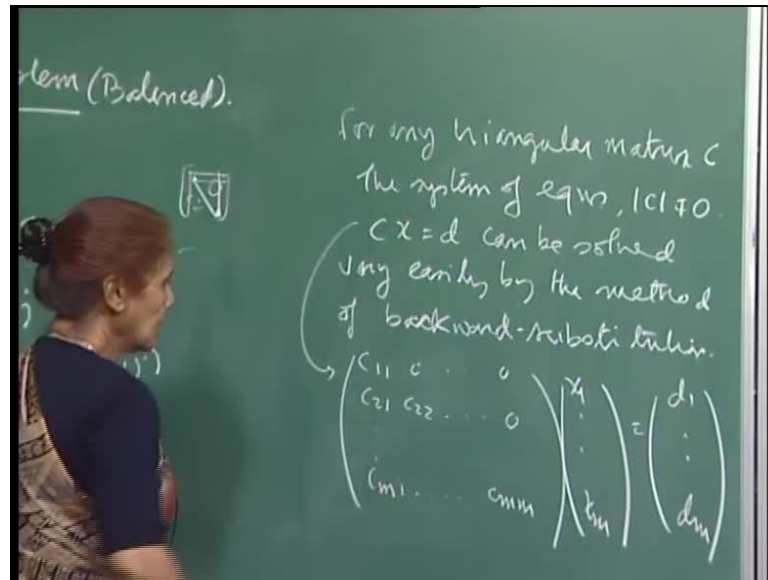 lem (Balanced).
for any triangular matrix C
the system of eqns, |C| ≠ 0.
Cx = d can be solved
very easily by the method
of backward-substitution.
C11 0 .. 0
C21 C22 .... 0
Cm1 .... Cmm
x1
:
xm
=
d1
:
dm